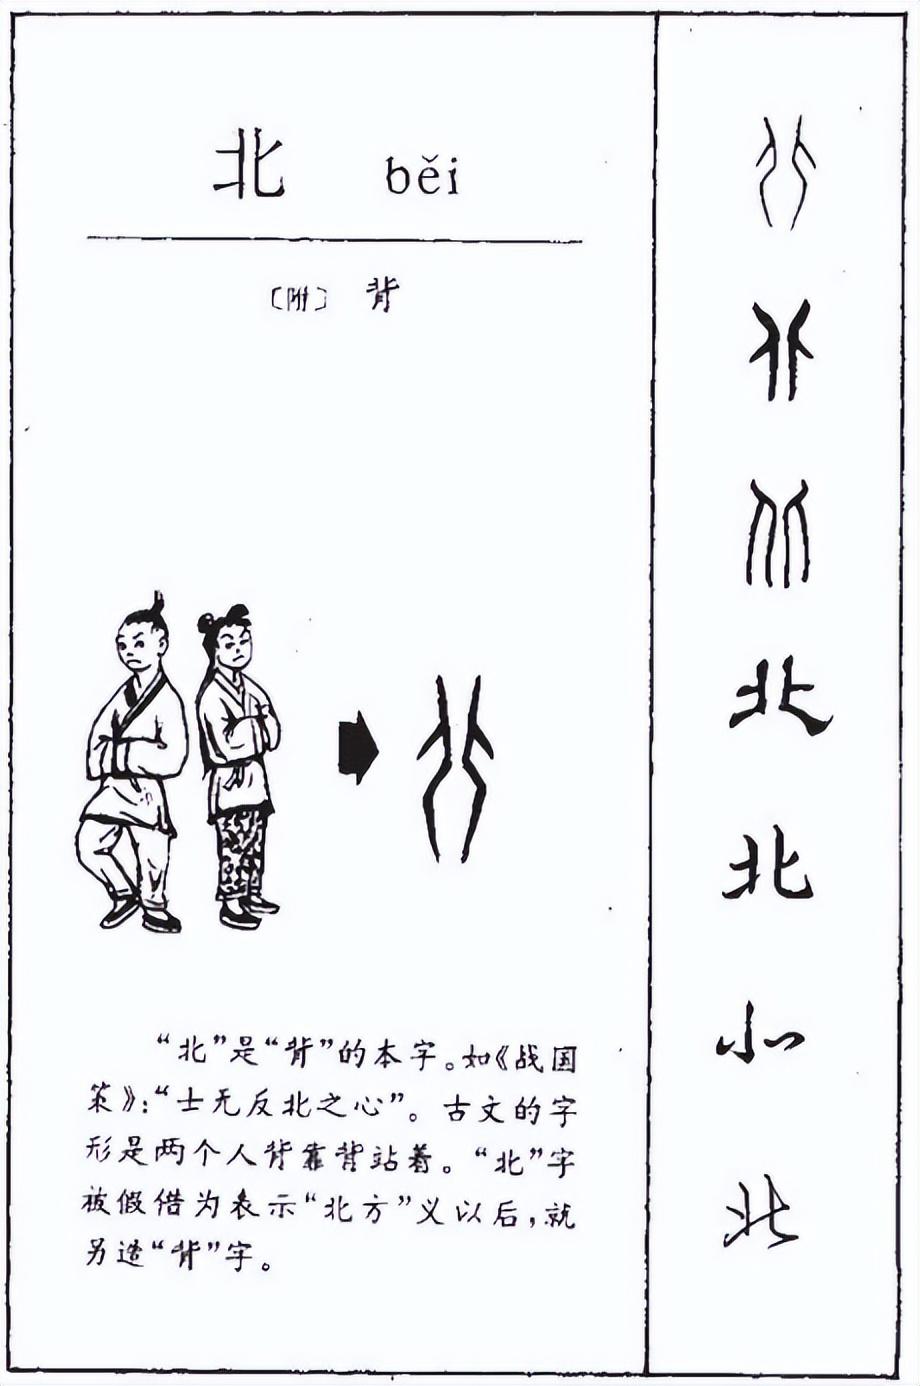 北 běi
〔附〕 背
“北”是“背”的本字。如《战国
策》：“士无反北之心”。古文的字
形是两个人背靠背站着。“北”字
被假借为表示“北方”义以后，就
另造“背”字。
北
北
北